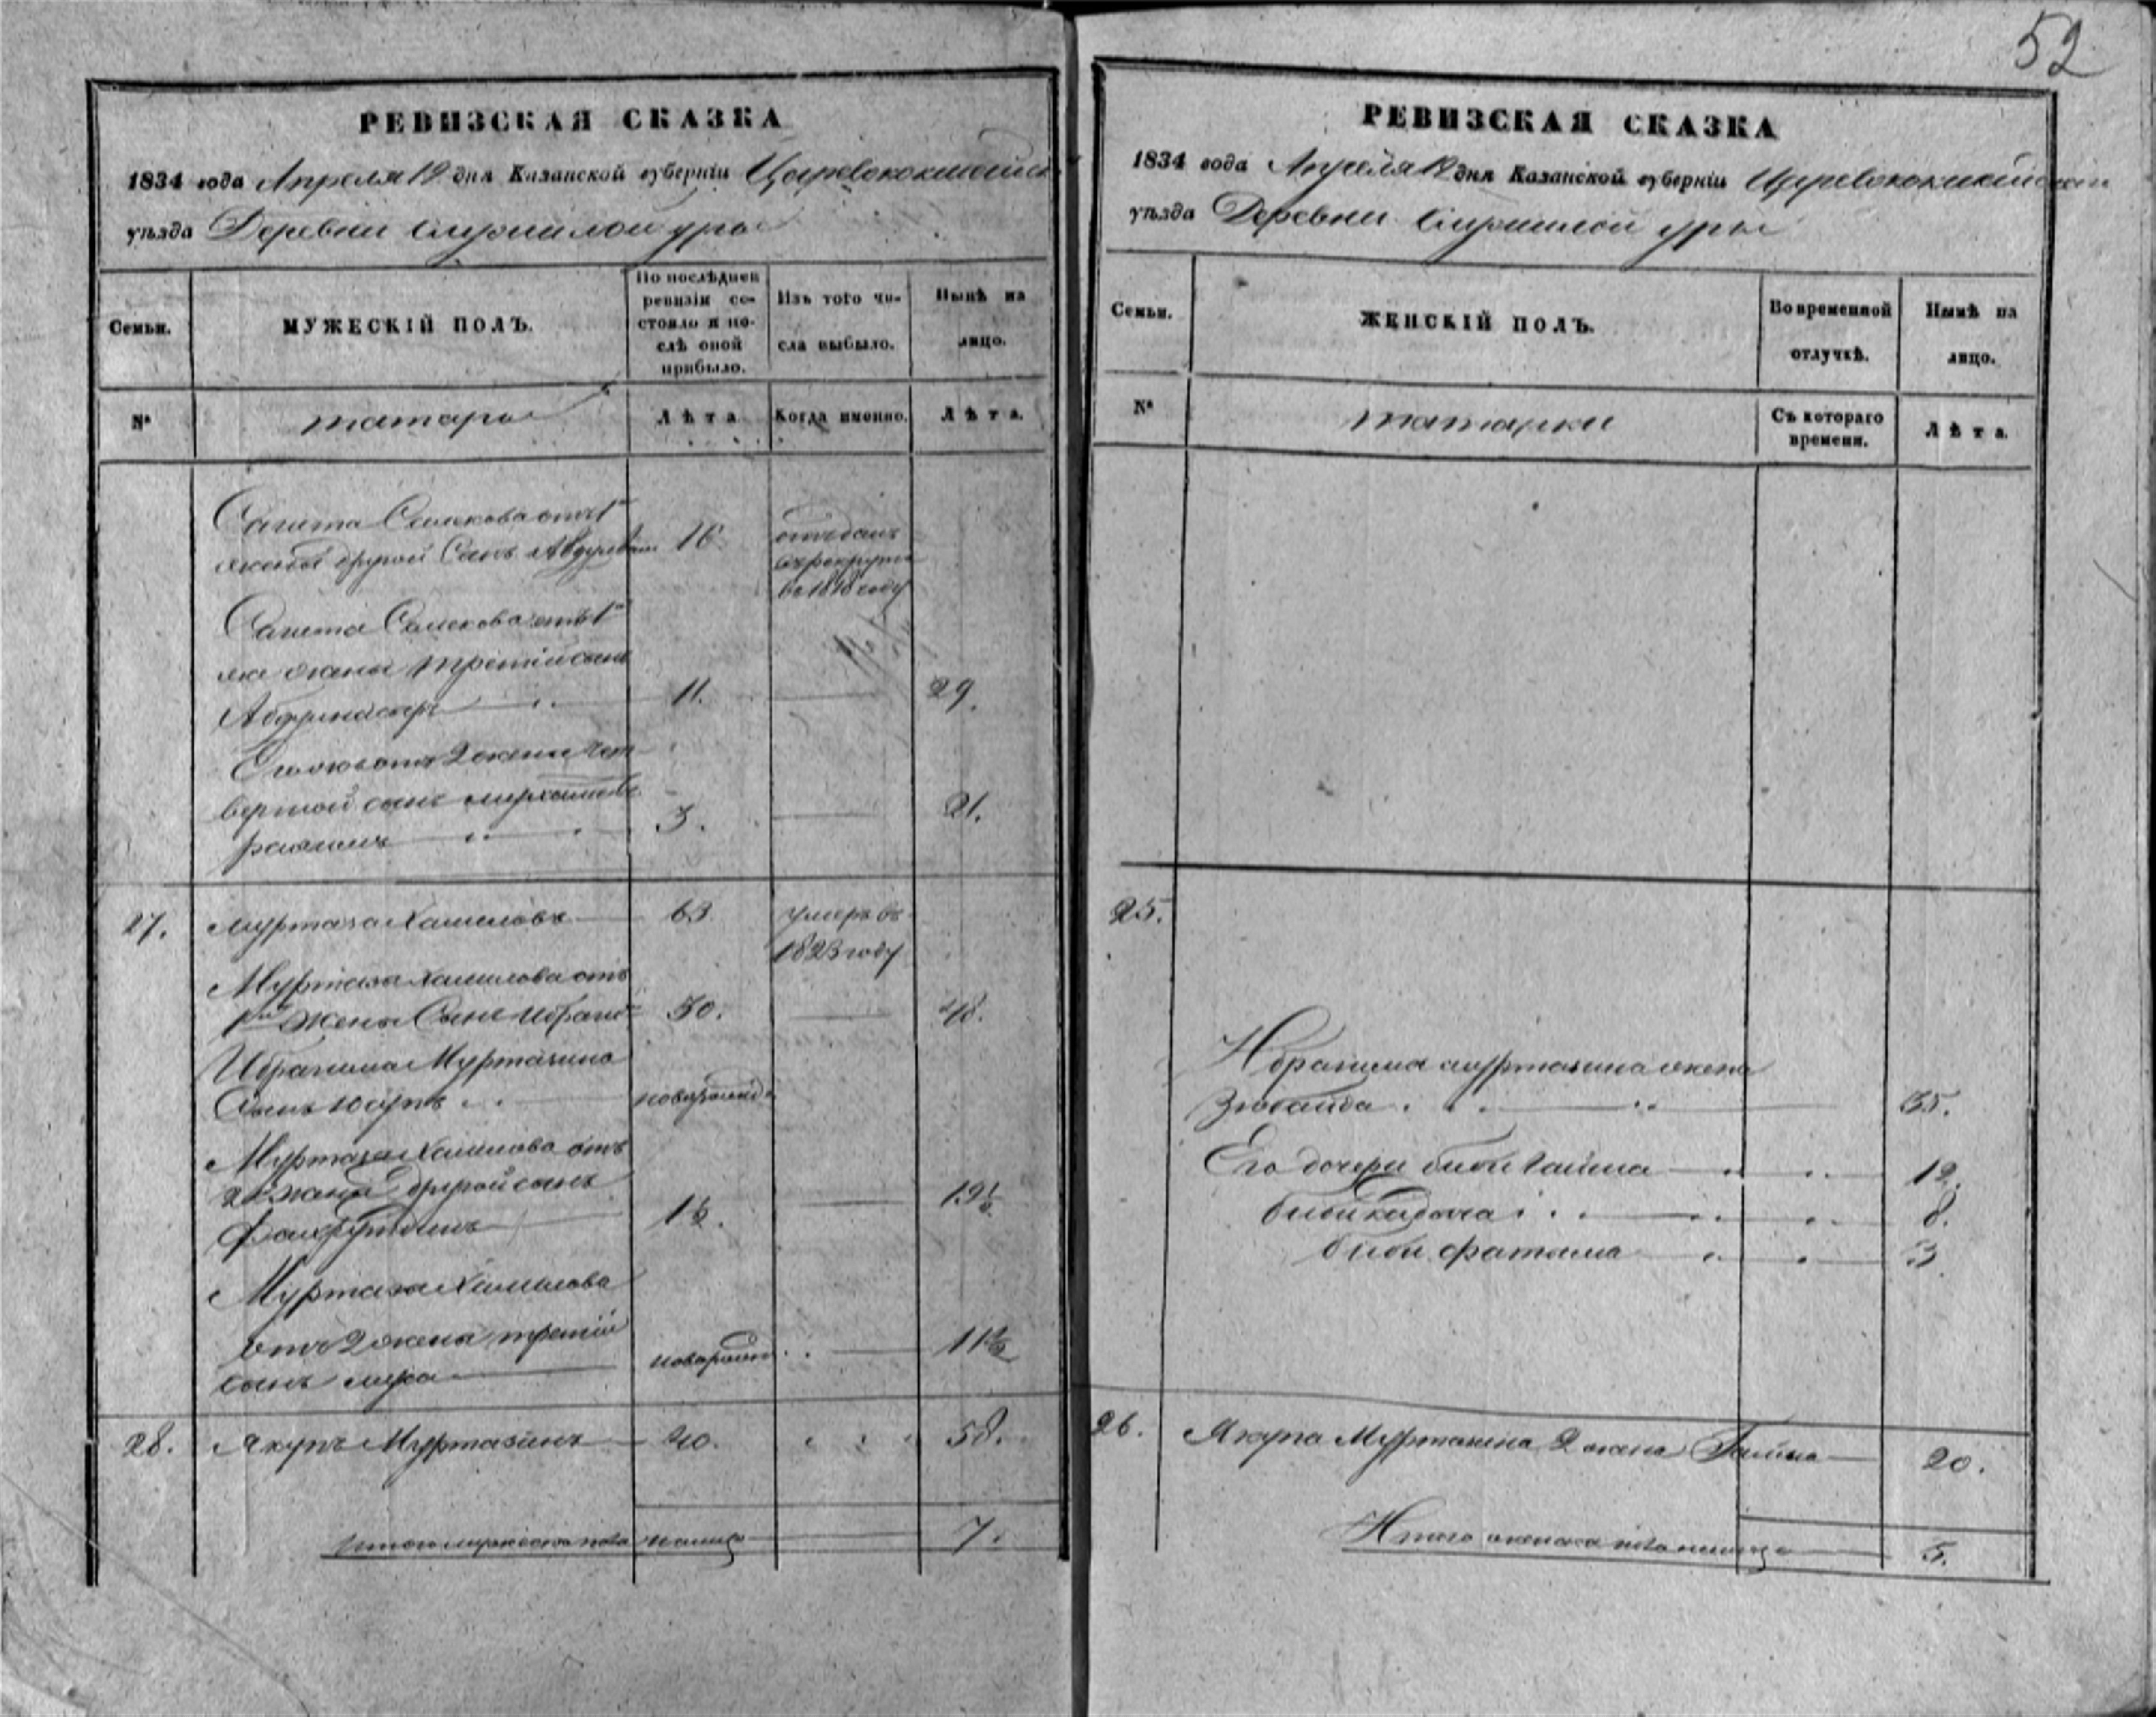 52
РЕВИЗСКАЯ СКАЗКА
1834 года Апреля 19 дня Казанской губерніи Царевококшайск
уѣзда Деревни уры
Семьи.
МУЖЕСКІЙ ПОЛЪ.
По послѣдней ревизіи со-
стояло и по-
слѣ оной
прибыло.
Изъ того чи-
сла выбыло.
Нынѣ на
лицо.
№
татары
Лѣта
Когда именно.
Лѣта.
Сагита от 1
жены другой Сынъ
16
отъданъ
в рекруты
в 1818 году
Сагита от 1
же жены третій сынъ
Абдулнасыръ
11.
29.
Его же от 2 жены чет
вертой сынъ
3.
21.
27.
Муртаза Халиловъ
63
умеръ въ
1823 году
Муртаза Халилова отъ
1й жены Сынъ Ибраги
30.
48.
Ибрагима Муртазина
Сынъ
новорожд
Муртаза Халилова отъ
2й жены другой сынъ
1½.
19½
Муртаза Халилова
от 2 жены третій
сынъ
новорожд
11½
28.
Якупъ Муртазинъ
40.
58.
Итого мужеска пола налицо
7.
РЕВИЗСКАЯ СКАЗКА
1834 года Апреля 19 дня Казанской губерніи Царевококшайскаго
уѣзда Деревни уры
Семьи.
ЖЕНСКІЙ ПОЛЪ.
Во временной
отлучкѣ.
Нынѣ на
лицо.
№
татарки
Съ котораго
времени.
Лѣта.
25.
Ибрагима Муртазина жена
Зюбайда
35.
Его дочери биби Галима
12.
биби
8.
биби фатыма
3
26.
Якупа Муртазина 2 жена Галима
20.
Итого женска пола налицо
5.